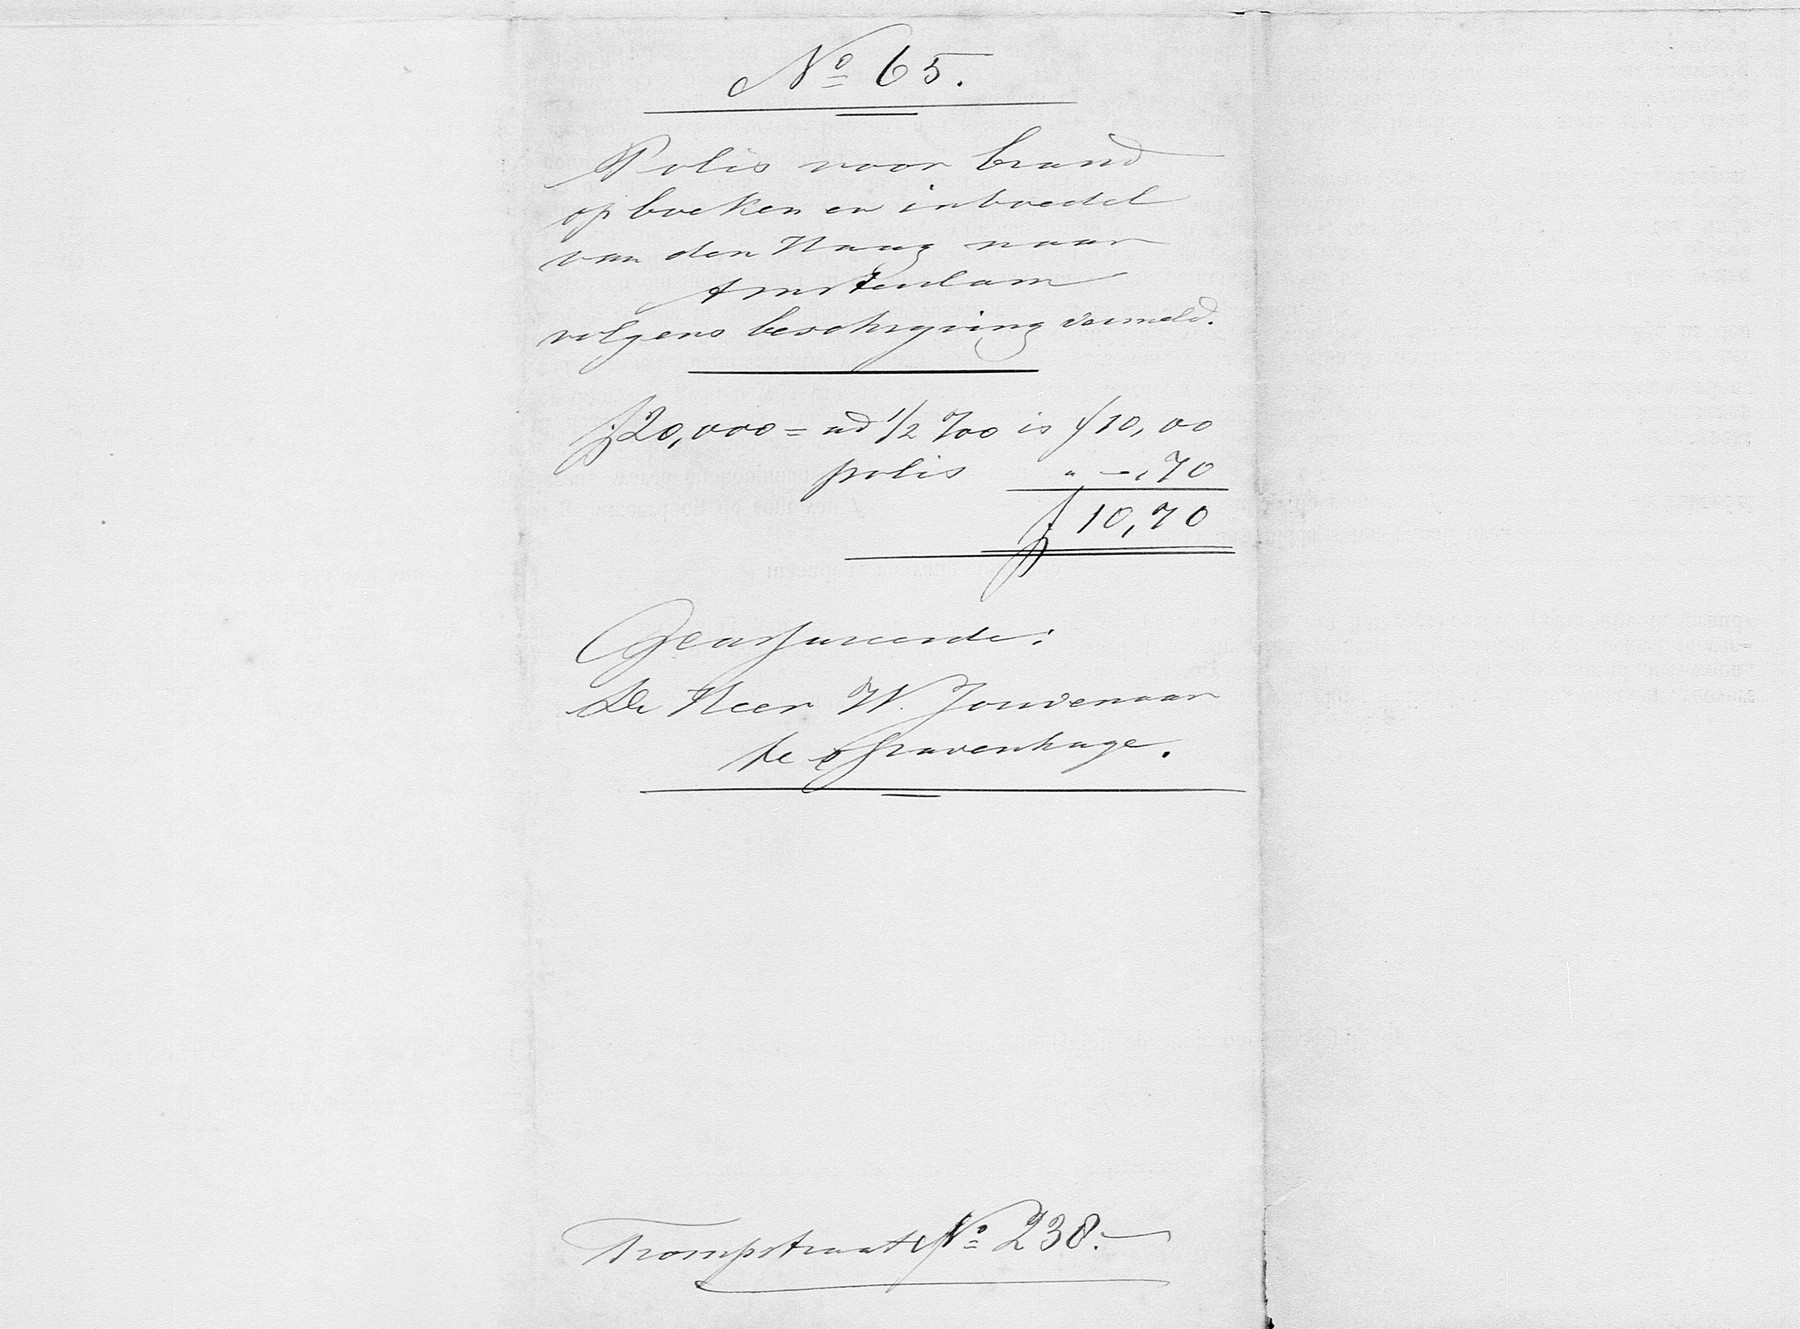 No 65.
Polis voor brand
op boeken en inboedel
van den Haag naar
Amsterdam
volgens beschrijving vermeld.
f 20,000 = ad 1/2 %00 is f 10,00
polis " -,70
f 10,70
Geassureerde:
De Heer W. Jouvenaar
te sGravenhage.
Trompstraat No 238.-